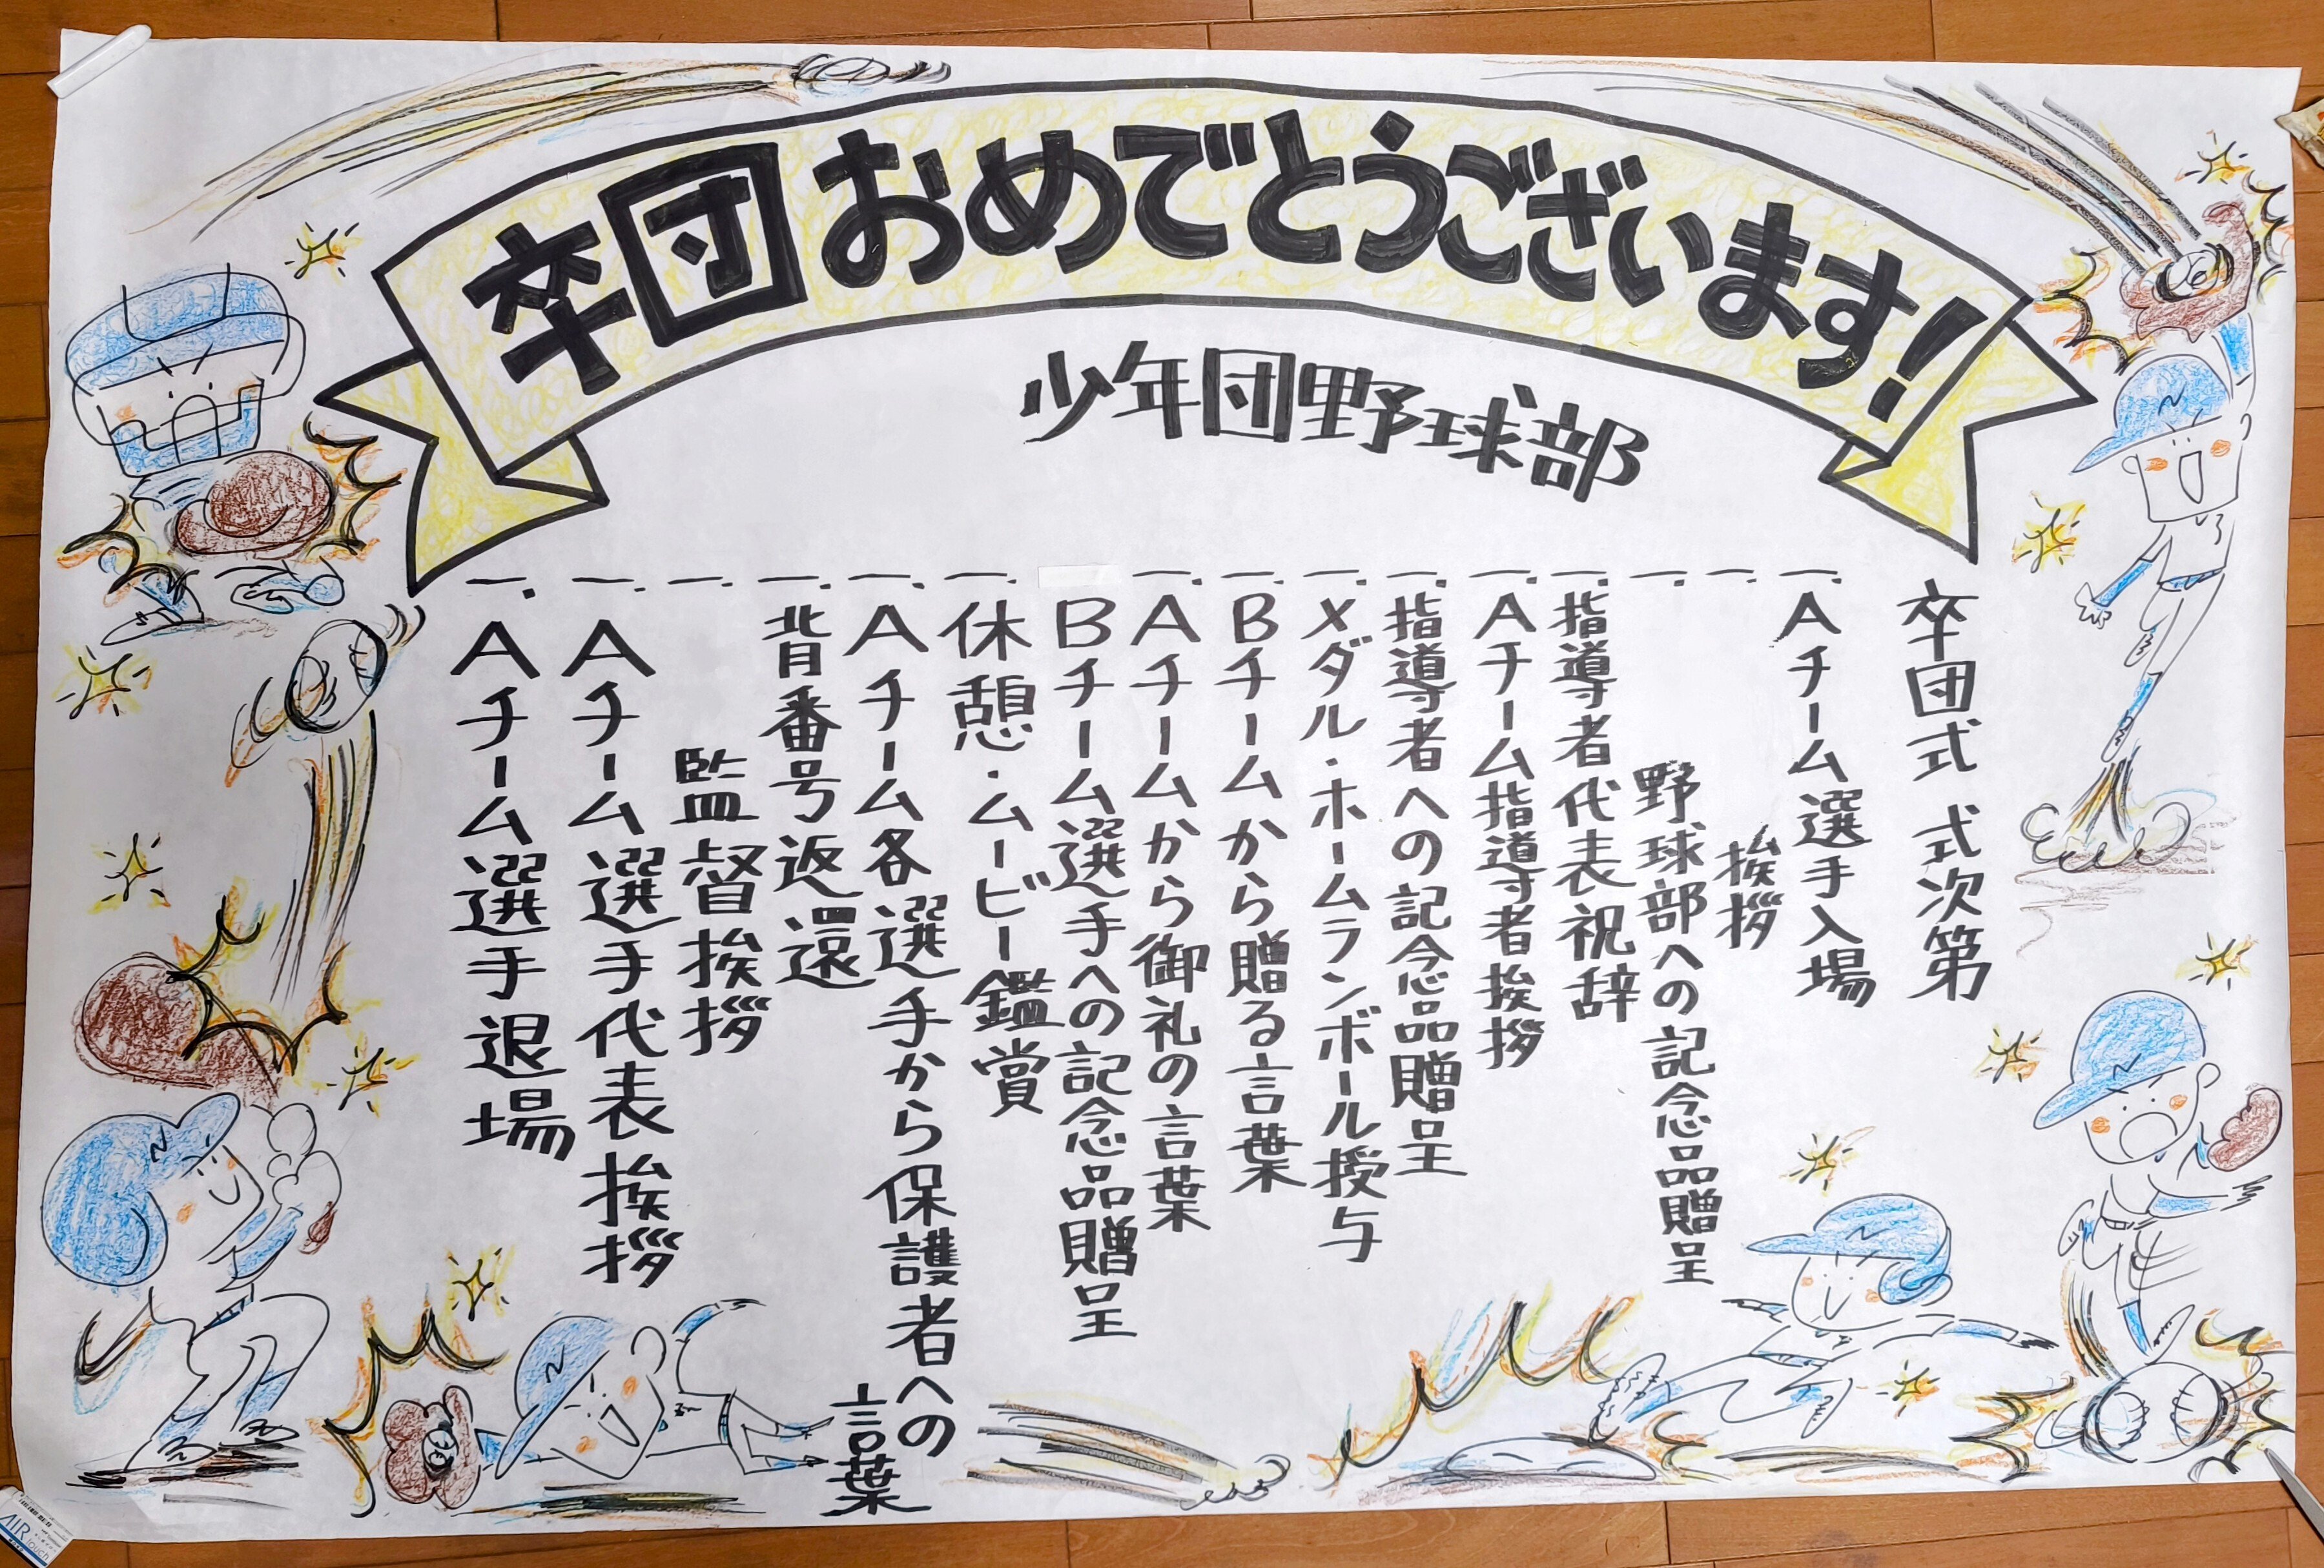 卒団おめでとうございます!
少年団野球部
卒団式 式次第
一. Aチーム選手入場
一. 挨拶
一. 野球部への記念品贈呈
一. 指導者代表祝辞
一. Aチーム指導者挨拶
一. 指導者への記念品贈呈
一. メダル・ホームランボール授与
一. Bチームから贈る言葉
一. Aチームから御礼の言葉
Bチーム選手への記念品贈呈
一. 休憩・ムービー鑑賞
一. Aチーム各選手から保護者への
言葉
一. 背番号返還
一. 監督挨拶
一. Aチーム選手代表挨拶
一. Aチーム選手退場
AIR
touch